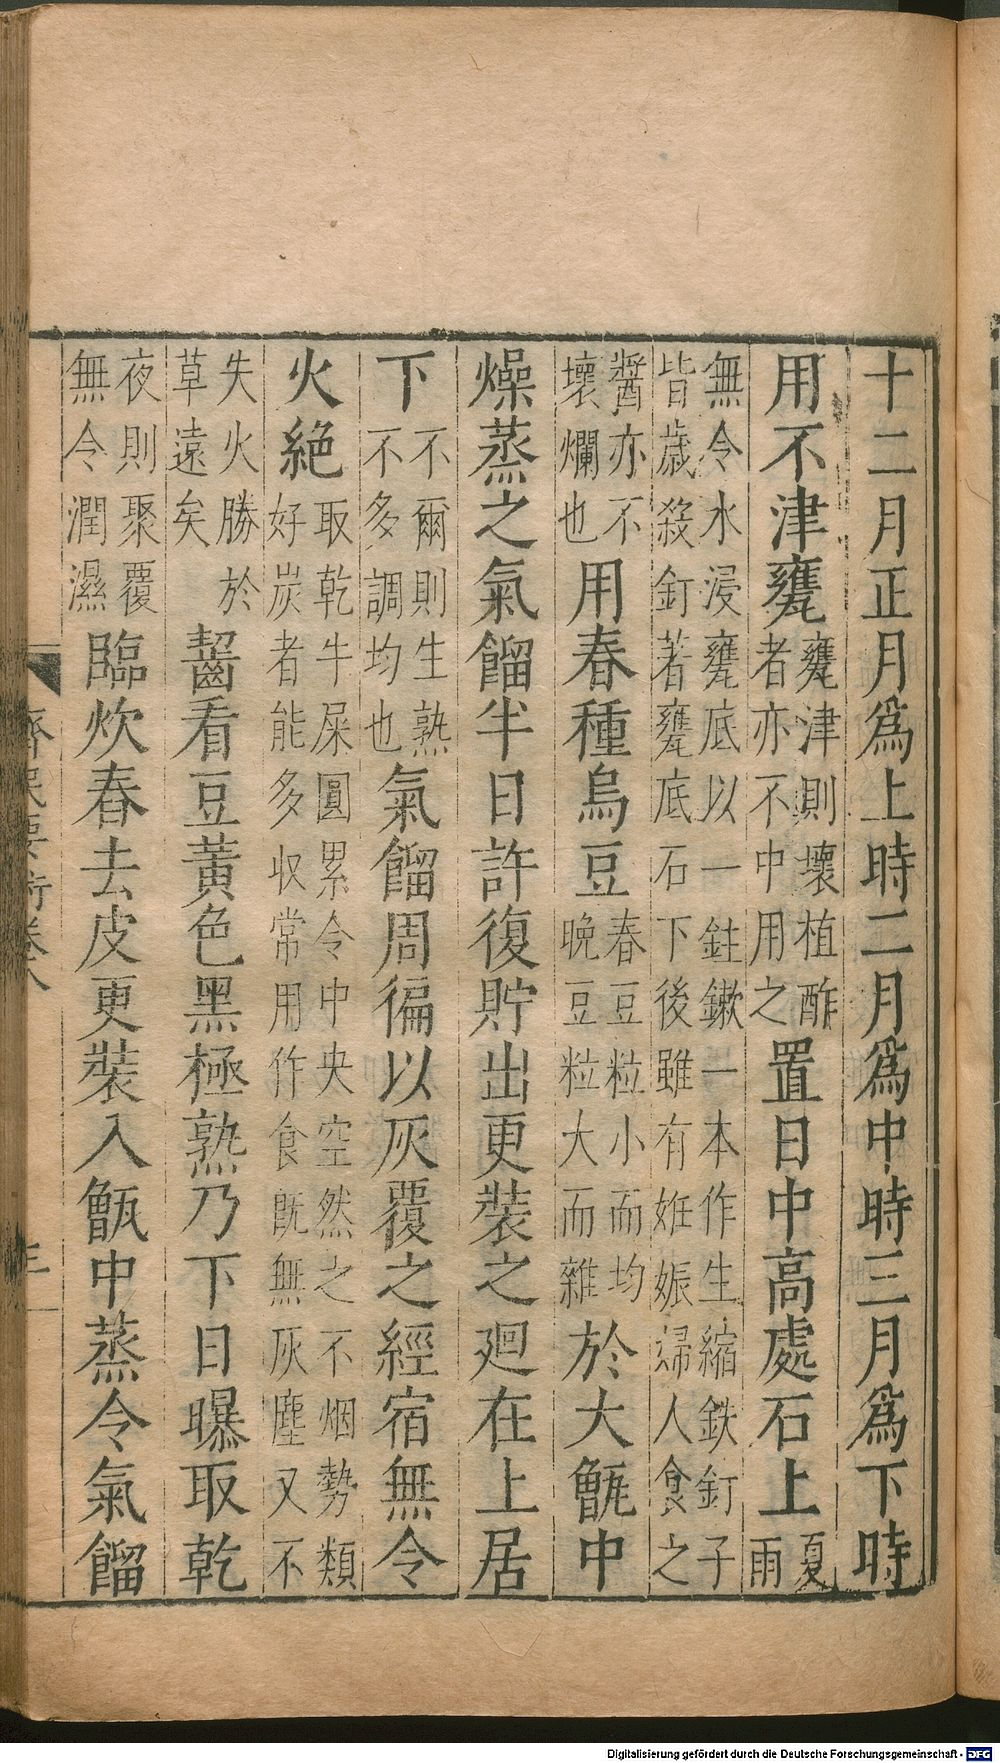 十二月正月爲上時二月爲中時三月爲下時
用不津甕甕津則壞植酢者亦不中用之置日中高處石上夏雨
無令水浸甕底以一鉒鏉一本作生縮鉄釘子皆歲殺釘著甕底石下後雖有姙娠婦人食之
醬亦不壞爛也用春種烏豆春豆粒小而均晚豆粒大而雜於大甑中
燥蒸之氣餾半日許復貯出更裝之廻在上居
下不爾則生熟不多調均也氣餾周徧以灰覆之經宿無令
火絶取乾牛屎圓累令中央空然之不烟勢類好炭者能多収常用作食旣無灰塵又不
失火勝於草遠矣齧看豆黃色黑極熟乃下日曝取乾
夜則聚覆無令潤濕臨炊春去皮更裝入甑中蒸令氣餾
齊民要術卷八 三
Digitalisierung gefördert durch die Deutsche Forschungsgemeinschaft - DFG